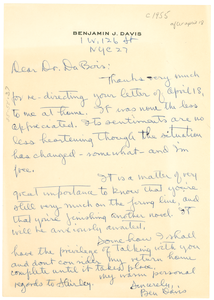 c 1955
after April 18
BENJAMIN J. DAVIS
1 W. 126 St
NYC 27
Dear Dr. DuBois:
Thanks very much
for re-directing your letter of April 18,
to me at home. It was none the less
appreciated. Its sentiments are no
less heartening though the situation
has changed - somewhat - and I'm
free.
It is a matter of very
great importance to know that you're
still very much on the firing line, and
that you're finishing another novel. It
will be anxiously awaited.
Somehow I shall
have the privilege of talking with you
and don't consider my return home
complete until it takes place.
My warm personal
regards to Shirley.
Sincerely,
Ben Davis